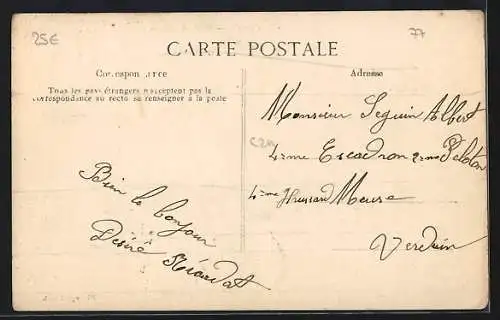 25€
77
CARTE POSTALE
Correspondance
Adresse
Tous les pays étrangers n'acceptent pas la
correspondance au recto se renseigner à la poste
Monsieur Seguin Albert
4eme Escadron 2eme Peloton
4eme Hussard Meuse
Verdun
Bien le bonjour
Désiré